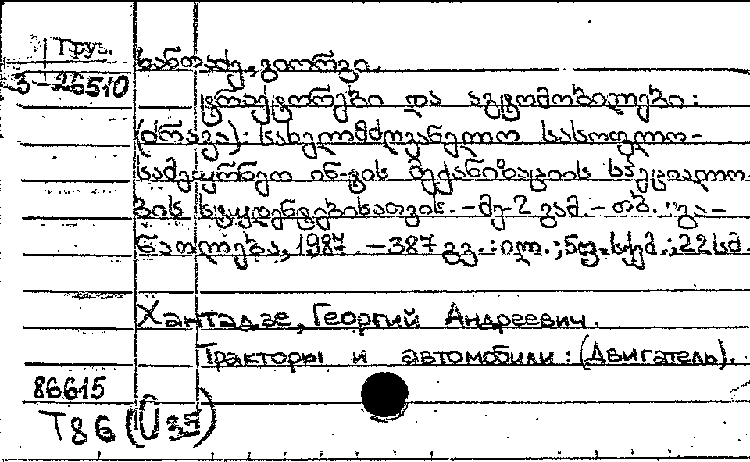 Груз.
3-26510
ხანთაძე, გიორგი.
ტრაქტორები და ავტომობილები:
(ძრავა): სახელმძღვანელო სასოფლო-
სამეურნეო ინ-ტის მექანიზაციის სპეციალო
ბის სტუდენტებისათვის. -მე-2 გამ. - თბ.: გა-
ნათლება, 1987. - 387 გვ.: ილ.; 5ფ. სქემ.; 22 სმ.
Хантадзе, Георгий Андреевич.
Тракторы и автомобили: (Двигатель).
86615
Т86